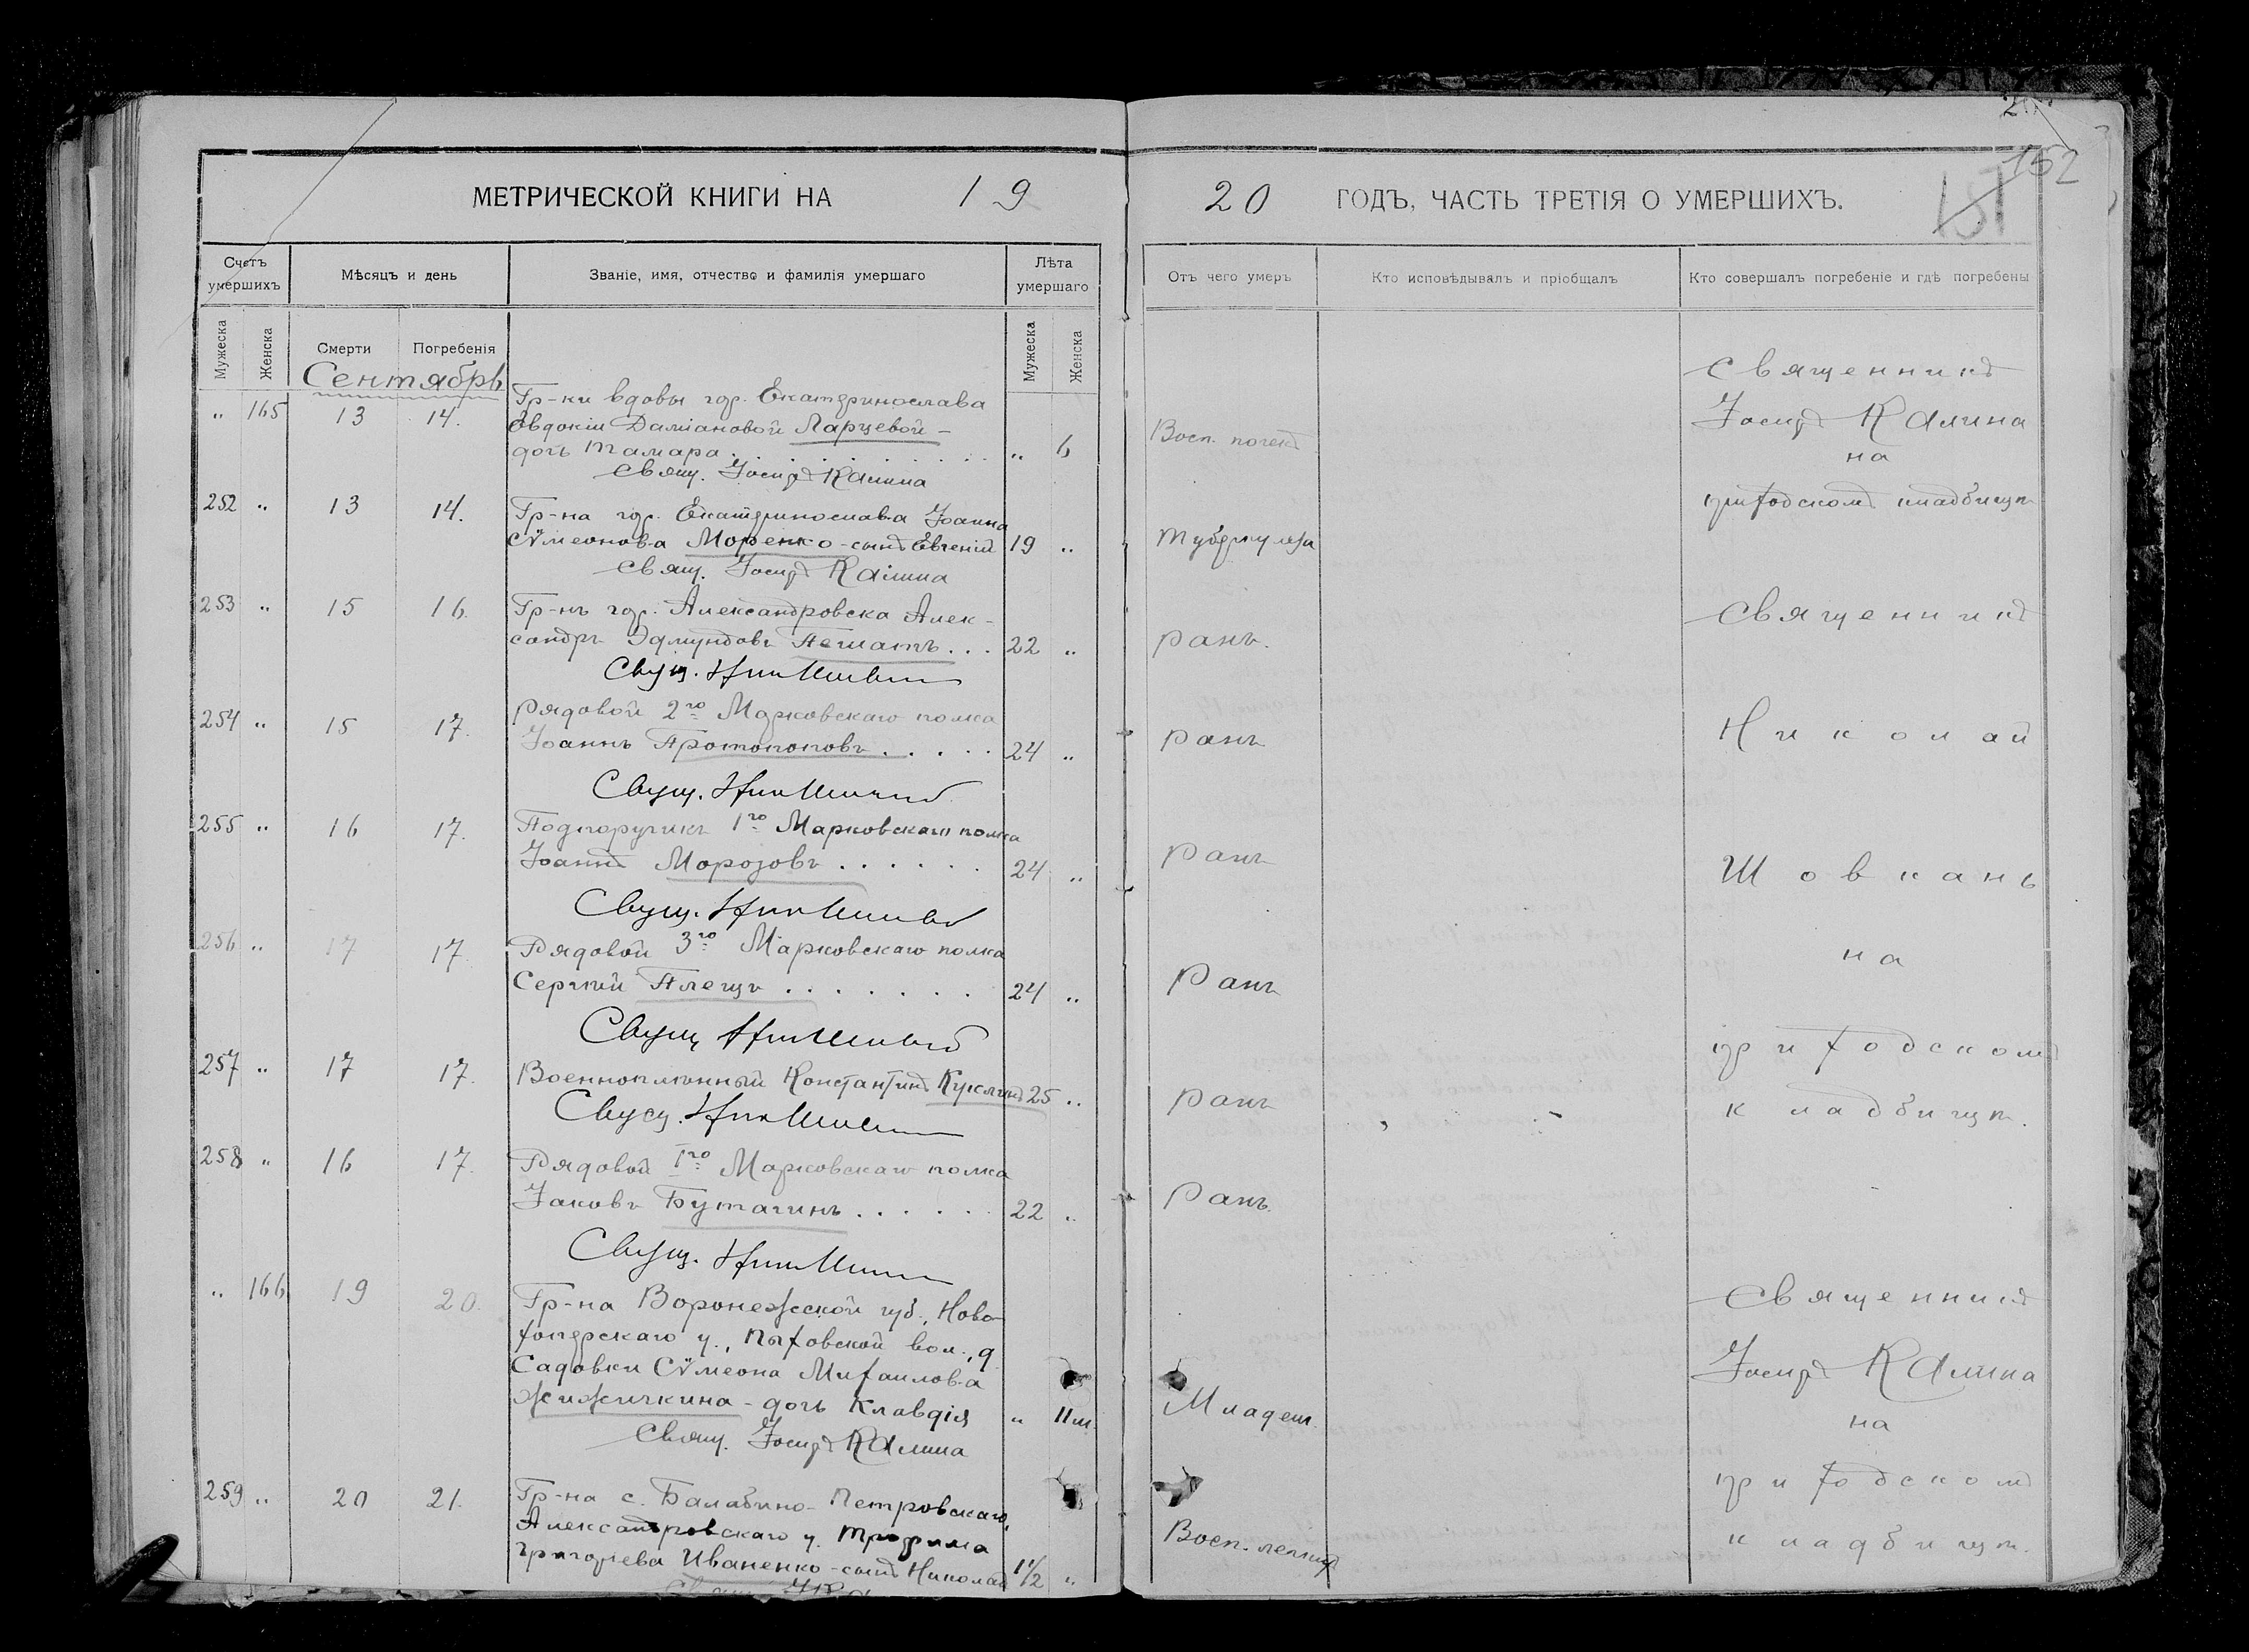 МЕТРИЧЕСКОЙ КНИГИ НА 19
20 ГОДЪ, ЧАСТЬ ТРЕТІЯ О УМЕРШИХЪ.
152
Счетъ умершихъ
Мѣсяцъ и день
Званіе, имя, отчество и фамилія умершаго
Лѣта умершаго
Отъ чего умеръ
Кто исповѣдывалъ и пріобщалъ
Кто совершалъ погребеніе и гдѣ погребены
Мужеска
Женска
Смерти
Погребенія
Мужеска
Женска
Сентябрь
" 165 13 14. Гр-ки вдовы гор. Екатеринослава
Евдокіи Даміановой Ларцевой -
дочь Тамара . . . " 6 Восп. почекъ
Свящ. Іосифъ Калина
252 " 13 14. Гр-на гор. Екатеринослава Іоанна
Сѵмеонова Моренко - сынъ Евгеній 19 " Туберкулеза
Свящ. Іосифъ Калина
Священникъ
Іосифъ Калина
на
приходскомъ кладбищѣ
253 " 15 16. Гр-нъ гор. Александровска Алек-
сандръ Эдмундовъ . . . 22 " Ранъ.
Свящ.
254 " 15 17. Рядовой 2го Марковскаго полка
Іоаннъ Протопоповъ . . . . . 24 " Ранъ
Свящ.
255 " 16 17. Подпоручикъ 1го Марковскаго полка
Іоаннъ Морозовъ . . . . . . 24 " Ранъ
Свящ.
256 " 17 17. Рядовой 3го Марковскаго полка
Сергій Плещъ . . . . . . . 24 " Ранъ
Свящ.
257 " 17 17. Военноплѣнный Константинъ Куклинъ 25 " Ранъ
Свящ.
258 " 16 17. Рядовой 1го Марковскаго полка
Іаковъ Бутагинъ . . . . . . 22 " Ранъ.
Свящ.
Священникъ
Николай
Шовкань
на
приходскомъ
кладбищѣ.
" 166 19 20. Гр-на Воронежской губ., Ново-
хоперскаго у., Пыховской вол., д.
Садовки Сѵмеона Михаилова
Жижичкина - дочь Клавдія " 11 м. Младен.
Свящ. Іосифъ Калина
259 " 20 21. Гр-на с. Балабино-Петровскаго,
Александровскаго у. Трофима
Григоріева Иваненко - сынъ Николай 1 1/2 " Восп. легкихъ
Священникъ
Іосифъ Калина
на
приходскомъ
кладбищѣ.